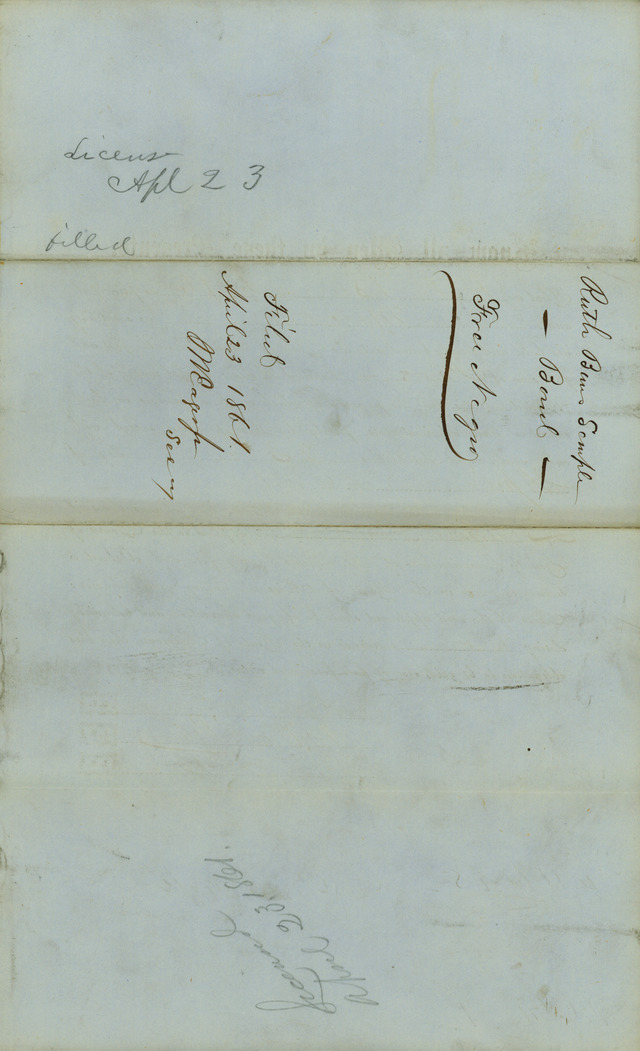 License
Apl 23
filled
Ruth Sample
— Bond —
Free Negro
Filed
April 23 1861.
Secy
April 23, 1861.